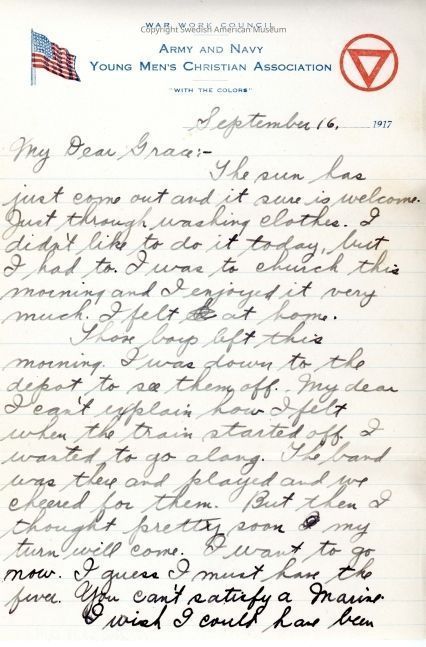 WAR WORK COUNCIL
Copyright Swedish American Museum
ARMY AND NAVY
YOUNG MEN'S CHRISTIAN ASSOCIATION
"WITH THE COLORS"
September 16, 1917
My Dear Grace:-
The sun has
just come out and it sure is welcome.
Just through washing clothes. I
didn't like to do it today, but
I had to. I was to church this
morning and I enjoyed it very
much. I felt at home.
Those boys left this
morning. I was down to the
depot to see them off. My dear
I can't explain how I felt
when the train started off. I
wanted to go along. The band
was there and played and we
cheered for them. But then I
thought pretty soon my
turn will come. I want to go
now. I guess I must have the
fever. You can't satisfy a Marine.
I wish I could have been